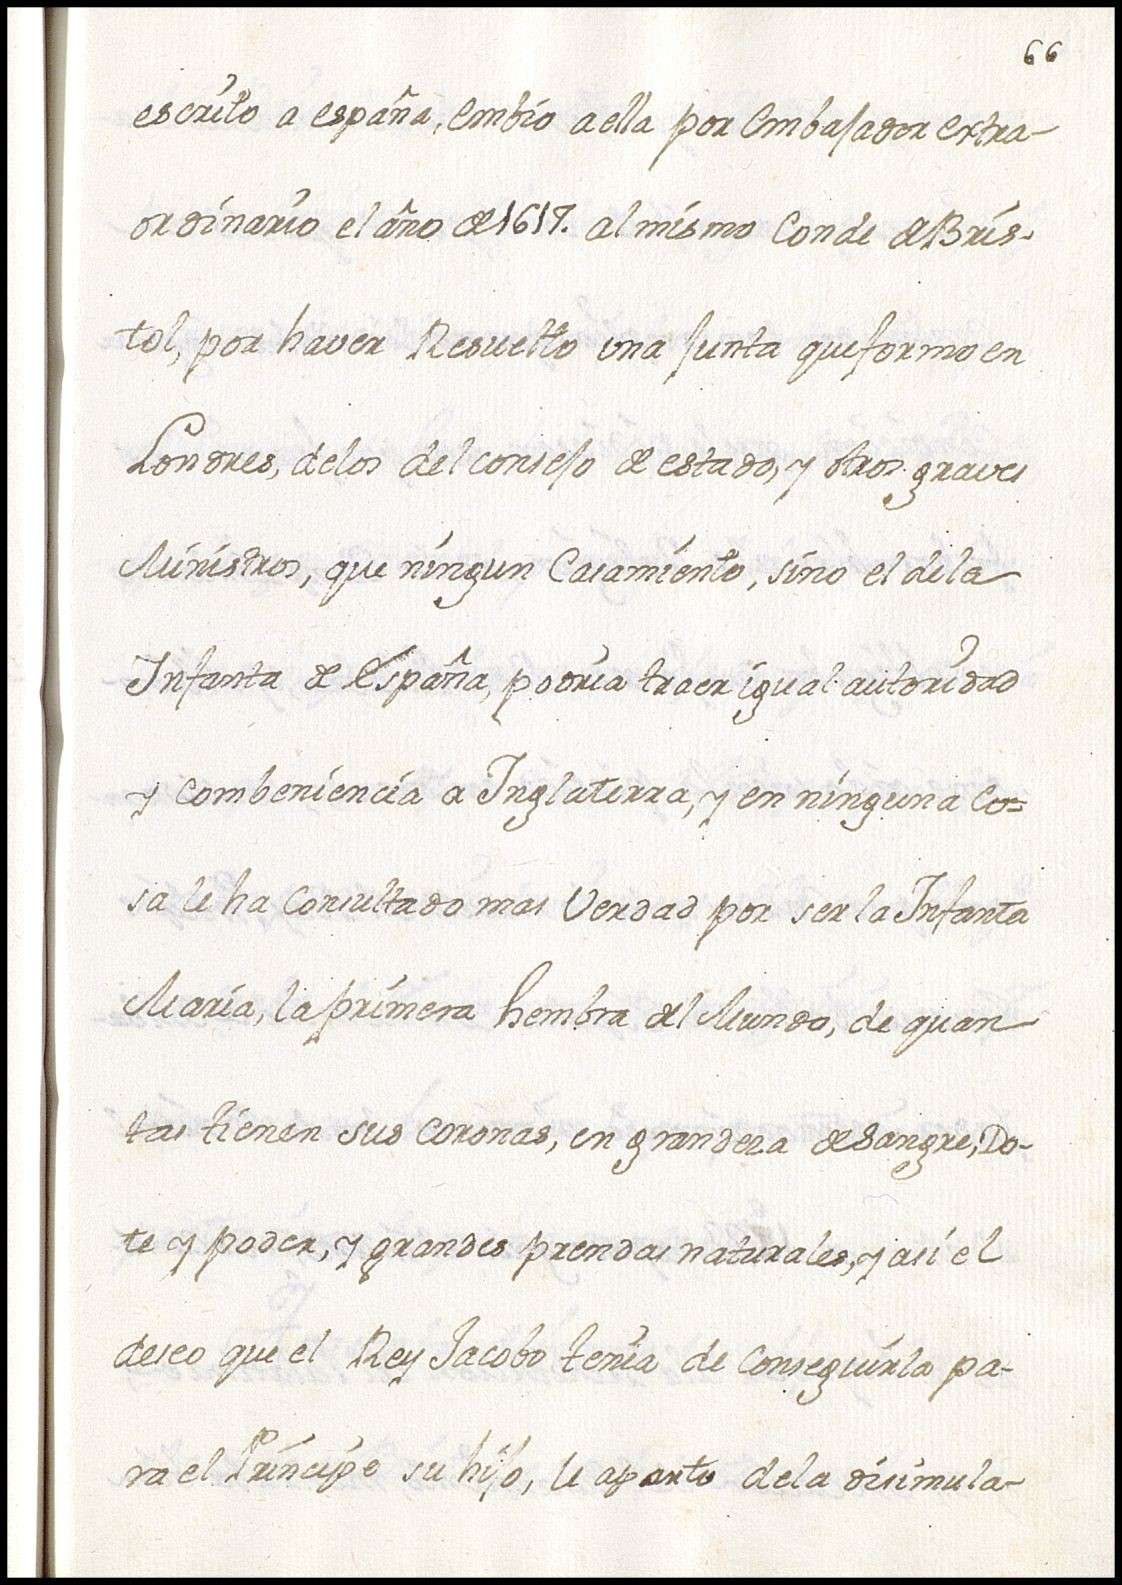 66
escrito a españa, embio a ella por embajador extra-
ordinario el año de 1617. al mismo Conde de Bris-
tol, por haver Resuelto una junta que formo en
Londres, delos del consejo de estado, y otros graves
Ministros, que ningun Casamiento, sino el dela
Infanta de España, podria traer igual autoridad
y combeniencia a Inglaterra, y en ninguna co=
sa le ha Consultado mas Verdad por ser la Infanta
Maria, la primera hembra del Mundo, de quan
tas tienen sus coronas, en grandeza de Sangre, Do-
te y poder, y grandes prendas naturales, y asi el
deseo que el Rey Jacobo tenia de Conseguirla pa-
ra el Principe su hijo, le aparto dela disimula-